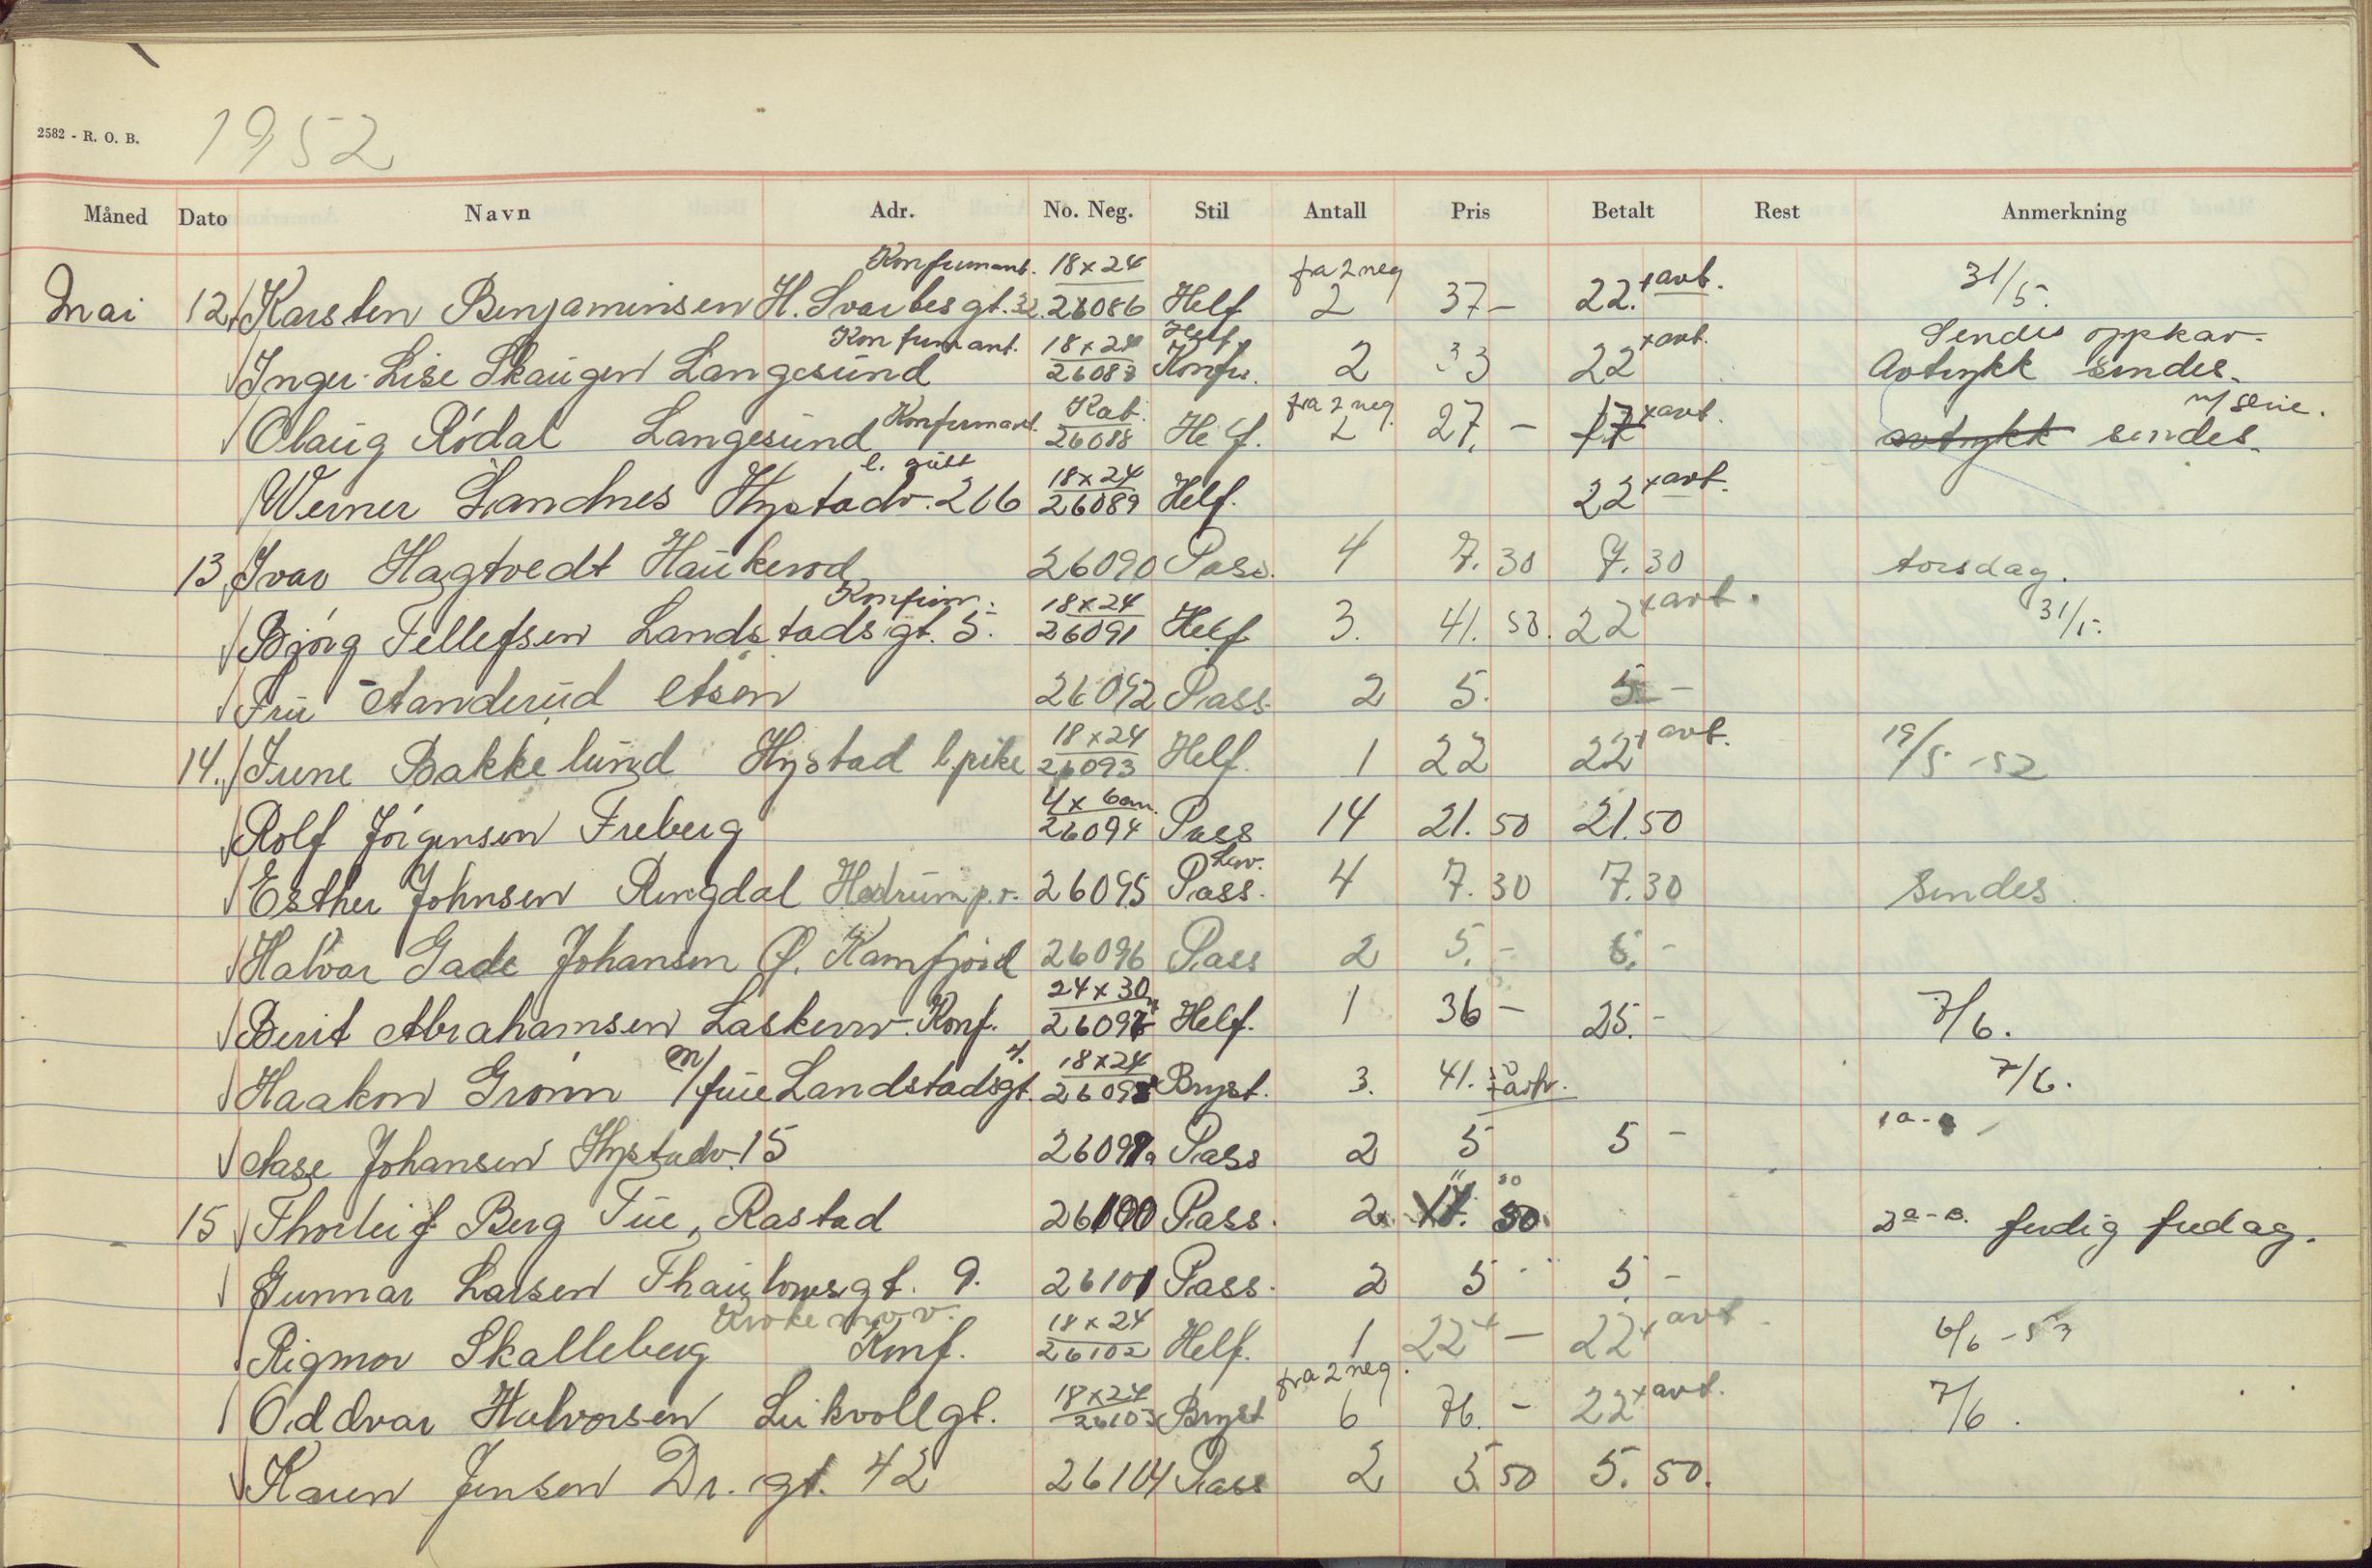 2582 - R. O. B.
1952
Måned Dato Navn Adr. No. Neg. Stil Antall Pris Betalt Rest Anmerkning
Konfirmant. 18x24 fra 2 neg
Mai 12 Karsten Benjaminsen H. Svartes gt. 32. 26086 Helf 2 37 - 22.+avt. 31/5.
Konfirmant. 18x24 Helf. Sendes oppkav.
Inger-Lise Skaugen Langesund 26087 Konfir. 2 33 22 xavt. Avtrykk sendes.
Konfirmant. Kab. fra 2 neg. m/ serie.
Olaug Rödal Langesund 26088 Helf. 2 27. - 17 xavt. avtrykk sendes.
l. gutt 18x24
Werner Landnes Hystadv. 266 26089 Helf. 22 xavt.
13 Ivar Hagtvedt Haukerød 26090 Pass. 4 7.30 7.30 torsdag.
Konfirm. 18x24
Bjørg Tellefsen Landstadsgt. 5. 26091 Helf 3. 41. 50. 22 xavt. 31/5.
Fru Aanderud Åsen 26092 Pass. 2 5. 5 -
18x24
14. Irene Bakkelund Hystad l. pike 26093 Helf. 1 22 22+ avt. 19/5 -52
4x6cm.
Rolf Jörgensen Freberg 26094 Pass 14 21.50 21.50
Lev.
Esther Johnsen Ringdal Hedrum p.r. 26095 Pass. 4 7.30 7.30 Sendes.
Halvar Gade Johansen Ø. Kamfjord 26096 Pass 2 5. - 5. -
24x30
Berit Abrahamsen Laskenv. Konf. 26097 Helf. 1 36 - 25. - 7/6.
18x24
Haakon Grönn m/ frue Landstadsgt. 26098 Bryst. 3. 41. 50 7/6.
Aase Johansen Hystadv. 15 26099 Pass 2 5 5 -
11 50
15 Thorleif Berg Fue, Rastad 26100 Pass. 2 17. 50 ferdig fredag.
Gunnar Larsen Thaulowsgt. 9. 26101 Pass. 2 5 5 -
18x24
Rigmor Skalleberg Konf. 26102 Helf. 1 22+ - 22+ avt 6/6 -53
18x24 fra 2 neg.
Oddvar Halvorsen Leikvollgt. 26103 Bryst 6 76. - 22 xavt. 7/6.
Karen Jensen Dr. gt. 42 26104 Pass 2 5.50 5. 50.